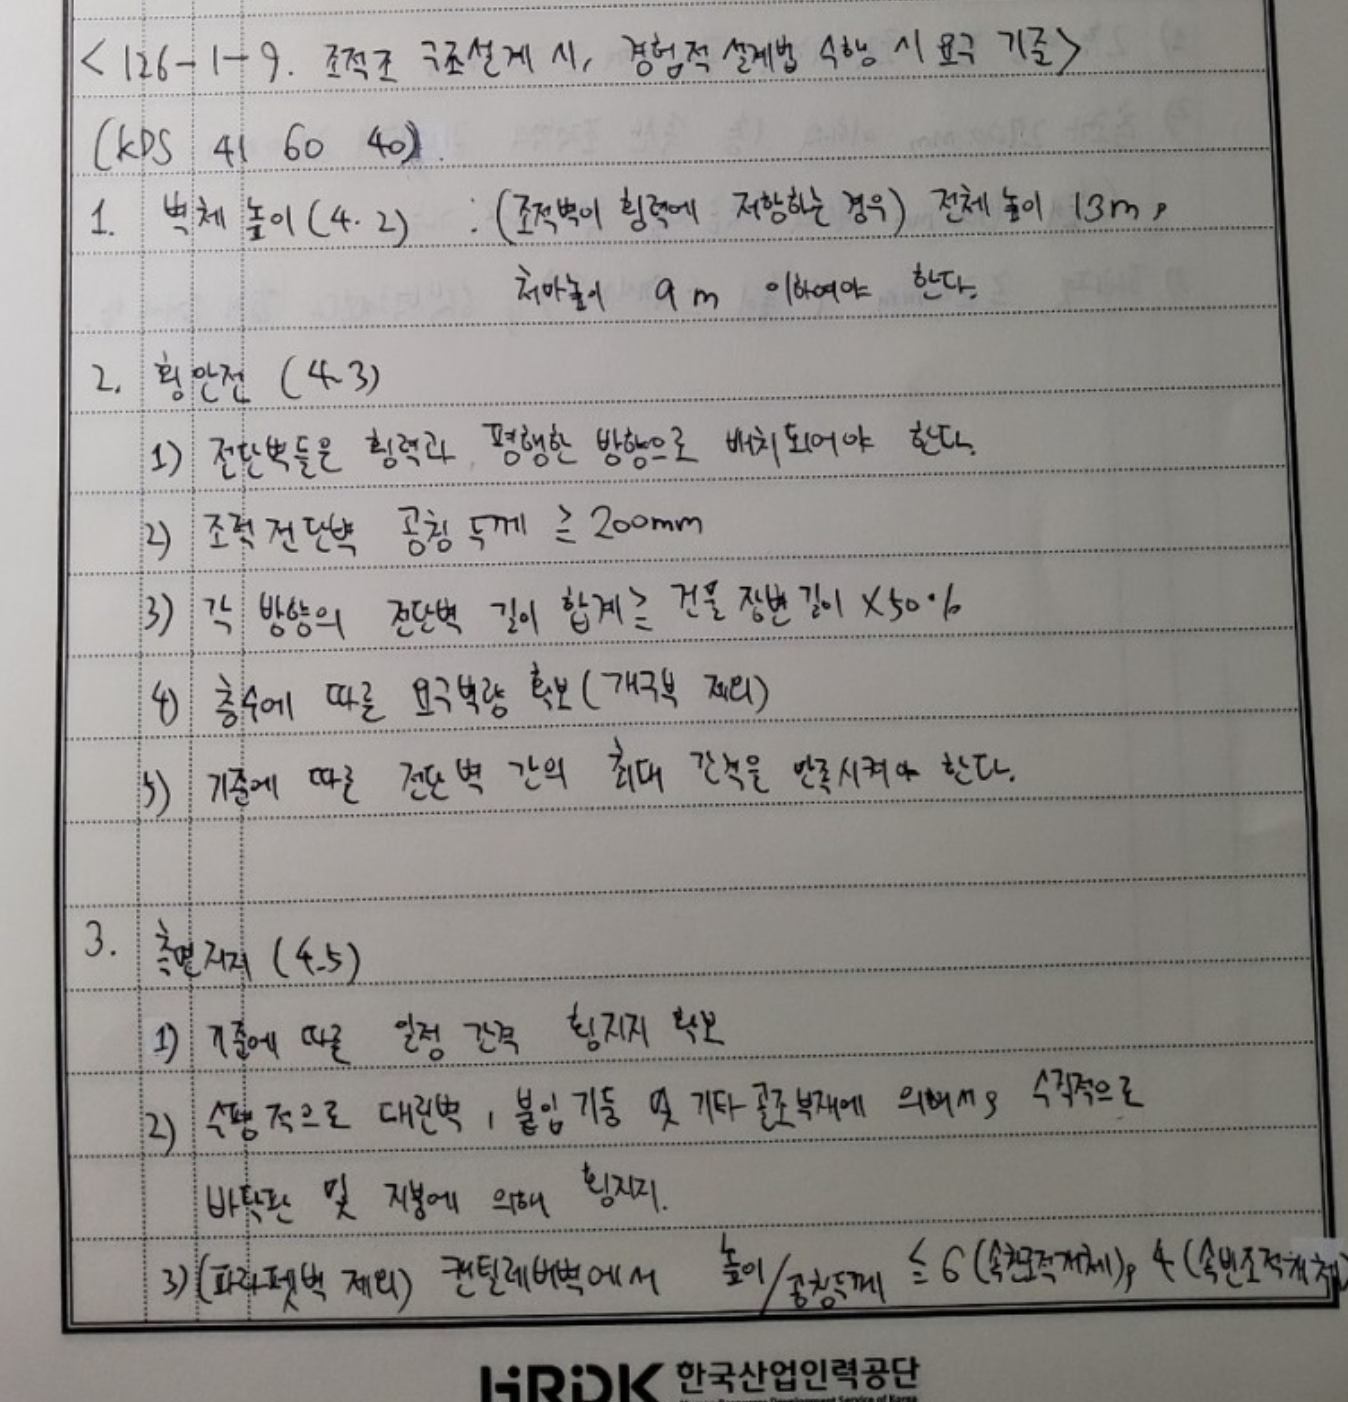 <126-1-9. 조적조 구조설계 시, 경험적 설계법 수행 시 요구 기준>
(KDS 41 60 40).
1. 벽체 높이(4.2) : (조적벽이 횡력에 저항하는 경우) 전체높이 13m,
처마높이 9m 이하여야 한다.
2. 횡안전 (4.3)
1) 전단벽들은 횡력과 평행한 방향으로 배치되어야 한다.
2) 조적전단벽 공칭두께 ≥ 200mm
3) 각 방향의 전단벽 길이 합계 ≥ 건물 장변길이 X50%
4) 층수에 따른 요구벽량 확보(개구부 제외)
5) 기준에 따른 전단벽 간의 최대 간격을 만족시켜야 한다.
3. 측면지지 (4.5)
1) 기준에 따른 일정 간격 횡지지 확보
2) 수평적으로 대린벽, 붙임기둥 및 기타골조부재에 의해서, 수직적으로
바닥판 및 지붕에 의해 횡지지.
3) (파라펫벽 제외) 캔틸레버벽에서 높이/공칭두께 ≤ 6 (속찬조적개체), 4 (속빈조적개체)
HRDK 한국산업인력공단
Human Resources Development Service of Korea